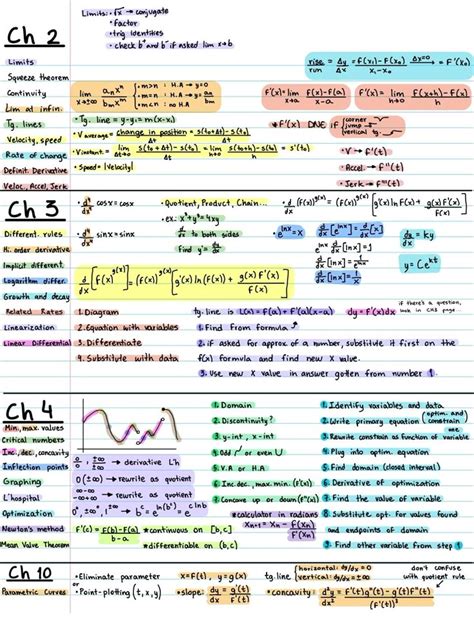 Ch 2
Limits: • √x → conjugate
• Factor
• trig identities
• check b⁺ and b⁻ if asked lim x→b
Limits
Squeeze theorem
Continuity
Lim at infin.
Tg. lines
Velocity, speed
Rate of change
Definit. Derivative
Veloc., Accel, Jerk
rise/run = Δy/Δx = f(x₁) - f(x₀)/x₁ - x₀ Δx=0 → = F'(x₀)
lim x→±∞ aₙxⁿ/bₘxᵐ
• m>n : H.A → y=0
• m=n : H.A → y= aₙ/bₘ
• m<n : no HA
F'(x) = lim x→a f(x)-F(a)/x-a
F'(x) = lim h→0 f(x+h)-f(x)/h
• Tg. line = y-y₁ = m(x-x₁)
• V average = change in position = s(t₀+Δt)-s(t₀)/Δt
• V instant. = lim Δt→0 s(t₀+Δt)-s(t₀)/Δt = lim h→0 s(t₀+h)-s(t₀)/h = s'(t₀)
• speed = |Velocity|
• F'(x) DNE if corner jump vertical tg.
• V → f'(t)
• Accel. → f''(t)
• Jerk → f'''(t)
Ch 3
Different. rules
Hi. order derivative
Implicit different.
Logarithm differ.
Growth and decay
Related Rates
Linearization
Linear Differential
cosx = cosx
sinx = sinx
• Quotient, Product, Chain...
• ex. x⁴+y⁴=4xy
d/dx to both sides
Find y' = dy/dx
• d/dx (f(x))^g(x) = (f(x))^g(x) [g'(x) ln F(x) + g(x) F'(x)/F(x)]
d/dx [F(x)^g(x)] = (f(x))^g(x) [g'(x) ln(F(x)) + g(x) F'(x)/f(x)]
e^lnx = x
d/dx [e^lnx] = d/dx [x]
e^lnx d/dx [lnx] = 1
x d/dx [lnx] = 1
d/dx [lnx] = 1/x
dy/dx = ky
y = Ce^kt
if there's a question, look in CH3 page.
1. Diagram
2. Equation with variables
3. Differentiate
4. Substitute with data
tg. line is L(x) = F(a) + F'(a)(x-a) dy = f'(x)dx
1. Find from formula
2. if asked for approx of a number, substitute it first on the
f(x) formula and find new x value.
3. Use new x value in answer gotten from number 1
Ch 4
Min, max. values
Critical numbers
Inc., dec., concavity
Inflection points
Graphing
L'hospital
Optimization
Newton's method
Mean Value Theorem
0/0, ±∞/±∞ → derivative L'h
0(±∞) → rewrite as quotient
∞-∞ → rewrite as quotient
F'(c) = f(b)-F(a)/b-a
* continuous on [b,c]
* differentiable on (b,c)
1. Domain
2. Discontinuity?
3. y-int, x-int
4. Odd or even
5. V.A or H.A
6. Inc, dec., max, min. (f'(x))
7. Concave up or down (f''(x))
* calculator in radians
Xₙ₊₁ = Xₙ - F(Xₙ)/F'(Xₙ)
1. Identify variables and data
2. Write primary equation (optim. and) constrain one
3. Rewrite constrain as function of variable
4. Plug into optim. equation
5. Find domain (closed interval)
6. Derivative of optimization
7. Find the value of variable
8. Substitute opt. for values found
and endpoints of domain
9. Find other variable from step 1
Ch 10
Parametric Curves
• Eliminate parameter
or
• Point-plotting (t,x,y)
x=F(t), y=g(x)
• slope: dy/dx = g'(t)/F'(t)
tg. line (horizontal: dy/dx = 0
vertical: dx/dy = 0
don't confuse with quotient rule
• concavity: d²y/dx² = F'(t)g''(t) - g'(t)F''(t)/(F'(t))³